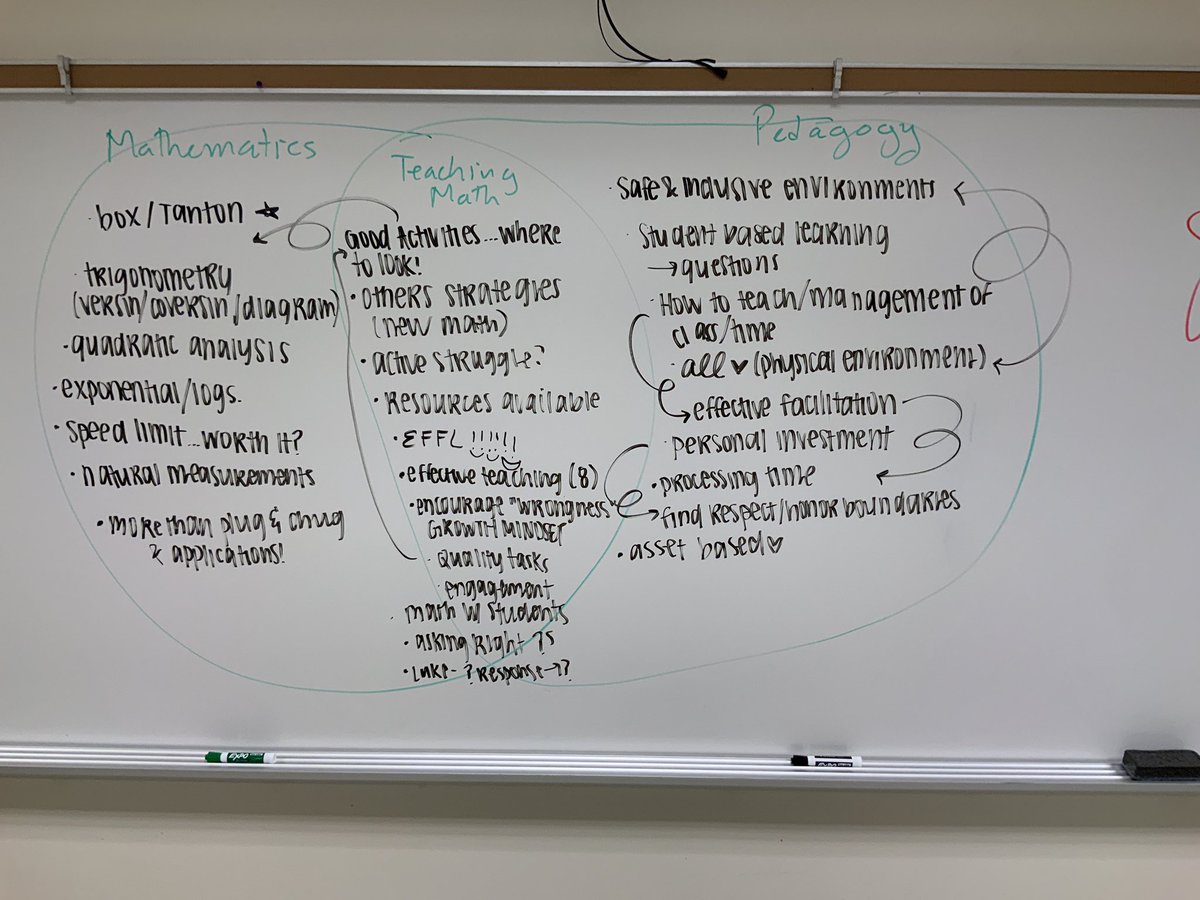 Mathematics
· box/Tanton ★
· trigonometry
(versin/coversin/diagram)
· quadratic analysis
· exponential/logs.
· speed limit...worth it?
· natural measurements
· more than plug & chug
& applications!
Teaching
Math
Good Activities...where
to look!
· others strategies
(new math)
· active struggle?
· Resources available
· EFFL !!!!!!
· effective teaching (8)
· encourage "wrongness"
GROWTH MINDSET
· Quality tasks
engagement
· math w/ students
· asking Right ?s
· Luke - ? Response → ??
Pedagogy
· safe & inclusive environments
· student based learning
→ questions
· How to teach/management of
class/time
· all ♥ (physical environment)
effective facilitation
· personal investment
· processing time
find respect/honor boundaries
· asset based ♥